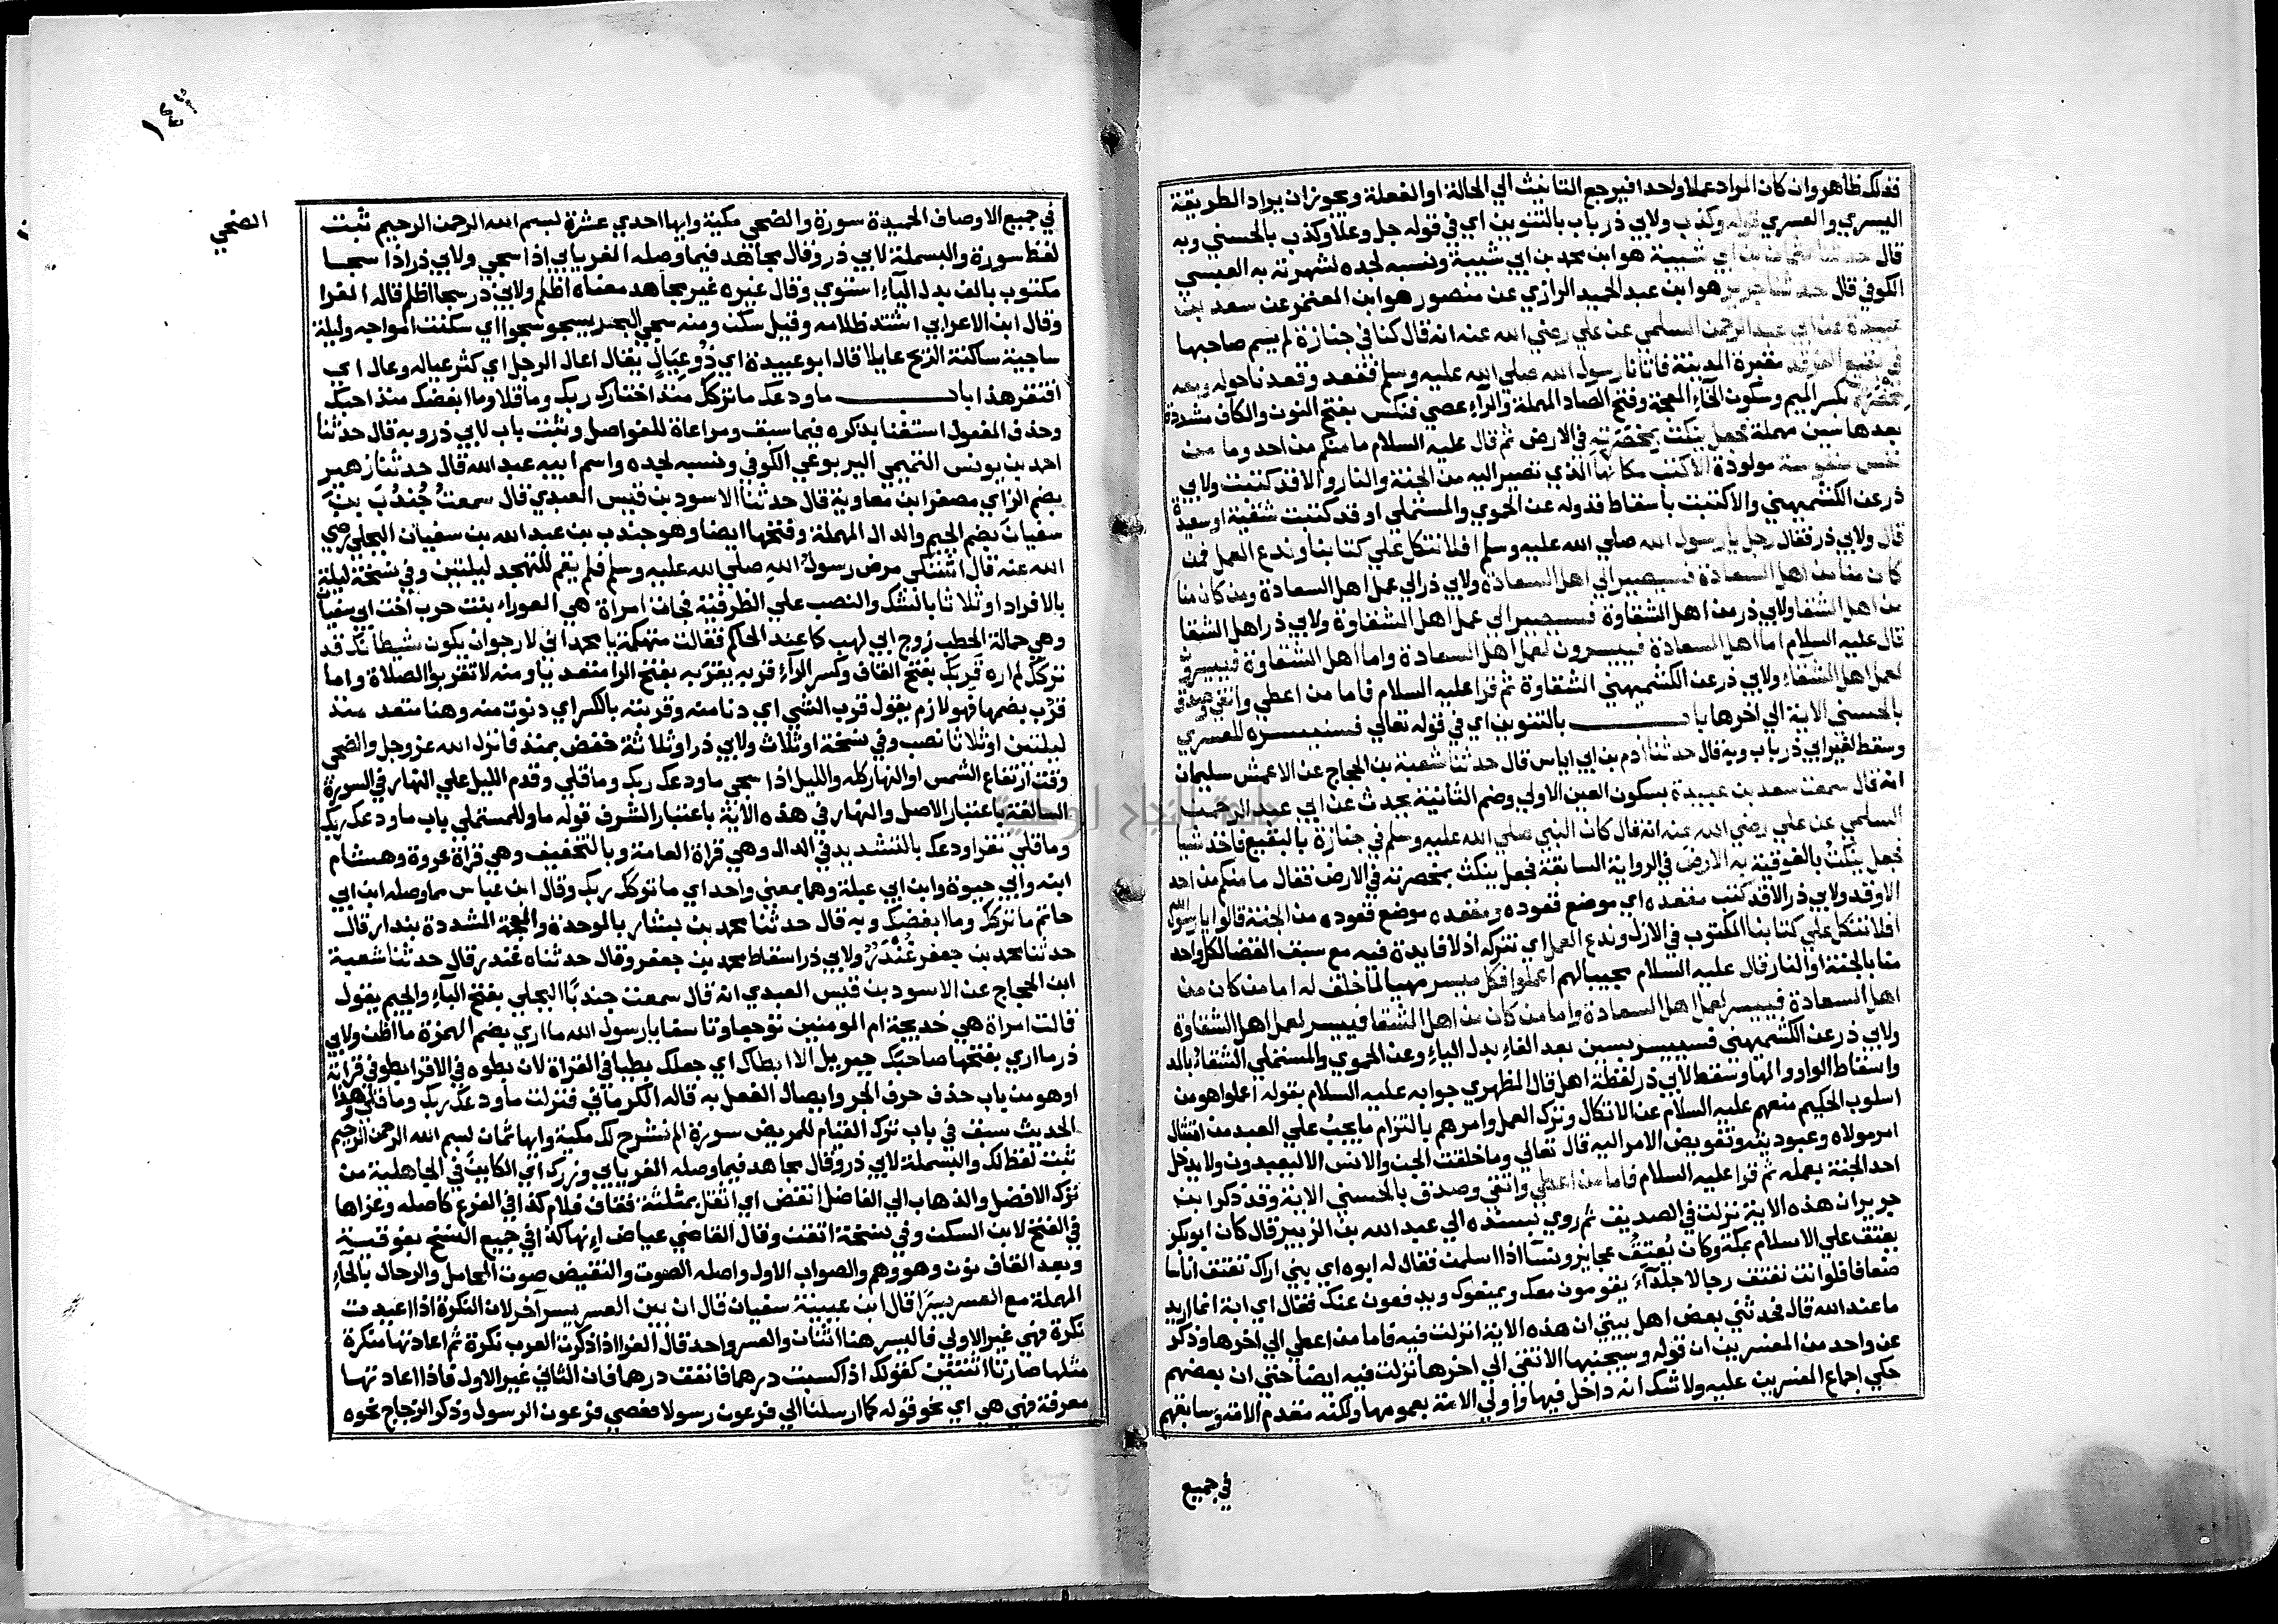 فذلك ظاهر وان كان المراد عملا واحدا فيرجع التانيث الي الحالة او الفعلة ويجوز ان يراد الطريقة
اليسري والعسري قوله وكذب ولابي ذر باب بالتنوين اي في قوله جل وعلا وكذب بالحسني وبه
قال حدثنا عثمان بن ابي شيبة هو ابن محمد بن ابي شيبة ونسبه لجده لشهرته به العبسي
الكوفي قال حدثنا جرير هو ابن عبد الحميد الرازي عن منصور هو ابن المعتمر عن سعد بن
عبيدة عن ابي عبد الرحمن السلمي عن علي رضي الله عنه انه قال كنا في جنازة لم يسم صاحبها
في بقيع الغرقد مقبرة المدينة فاتانا رسول الله صلي الله عليه وسلم فقعد وقعدنا حوله ومعه
مخصرة بكسر الميم وسكون الخاء المعجمة وفتح الصاد المهملة والراء عصي فنكس بفتح النون والكاف مشددة
بعدها سين مهملة فجعل ينكت بمخصرته في الارض ثم قال عليه السلام ما منكم من احد وما من
نفس منفوسة مولودة الا كتب مكانها الذي تصير اليه من الجنة والنار والا قد كتبت ولابي
ذر عن الكشميهني والا كتبت باسقاط قد وله عن الحموي والمستملي او قد كتبت شقية او سعيدة
قال ولابي ذر فقال رجل يا رسول الله صلي الله عليه وسلم افلا نتكل علي كتابنا وندع العمل فمن
كان منا من اهل السعادة فسيصير الي اهل السعادة ولابي ذر الي عمل اهل السعادة ومن كان منا
من اهل الشقا ولابي ذر من اهل الشقاوة فسيصير الي عمل اهل الشقاوة ولابي ذر اهل الشقا
قال عليه السلام اما اهل السعادة فييسرون لعمل اهل السعادة واما اهل الشقاوة فييسرون
لعمل اهل الشقاء ولابي ذر عن الكشميهني الشقاوة ثم قرا عليه السلام فاما من اعطي واتقي وصدق
بالحسني الاية الي اخرها باب بالتنوين اي في قوله تعالي فسنيسره للعسري
وسقط لغير ابي ذر باب وبه قال حدثنا ادم بن ابي اياس قال حدثنا شعبة بن الحجاج عن الاعمش سليمان
انه قال سمعت سعد بن عبيدة بسكون العين الاولي وضم الثانية يحدث عن ابي عبد الرحمن
السلمي عن علي رضي الله عنه انه قال كان النبي صلي الله عليه وسلم في جنازة بالبقيع فاخذ شيا
فجعل ينكت بالفوقية به الارض في الرواية السابقة فجعل ينكت بمخصرته في الارض فقال ما منكم من احد
الا وقد ولابي ذر الا قد كتب مقعده اي موضع قعوده ومقعده موضع قعوده من الجنة قالوا يا رسول الله
افلا نتكل علي كتابنا المكتوب في الازل وندع العمل اي نتركه اذ لا فايدة فيه مع سبق القضا لكل واحد
منا بالجنة او النار قال عليه السلام مجيبا لهم اعملوا فكل ميسر مهيا لما خلق له اما من كان من
اهل السعادة فييسر لعمل اهل السعادة واما من كان من اهل الشقا فييسر لعمل اهل الشقاوة
ولابي ذر عن الكشميهني فسييسر بسين بعد الفاء بدل الياء وعن الحموي والمستملي الشقاء بالمد
واسقاط الواو والها وسقط لابي ذر لفظة اهل قال المظهري جوابه عليه السلام بقوله اعملوا هو من
اسلوب الحكيم منعهم عليه السلام عن الاتكال وترك العمل وامرهم بالتزام ما يجب علي العبد من امتثال
امر مولاه وعبوديته وتفويض الامر اليه قال تعالي وما خلقت الجن والانس الا ليعبدون ولا يدخل
احد الجنة بعمله ثم قرا عليه السلام فاما من اعطي واتقي وصدق بالحسني الاية وقد ذكر ابن
جرير ان هذه الاية نزلت في الصديق ثم روي بسنده الي عبد الله بن الزبير قال كان ابو بكر
يعتق علي الاسلام بمكة وكان يعتق عجايز ونسآ اذا اسلمن فقال له ابوه اي بني اراك تعتق اناسا
ضعافا فلو انت تعتق رجالا جلدآء يقومون معك ويمنعوك ويدفعون عنك فقال اي ابة انما اريد
ما عند الله قال فحدثني بعض اهل بيتي ان هذه الاية انزلت فيه فاما من اعطي الي اخرها وذكر
عن واحد من المفسرين ان قوله وسيجنبها الاتقي الي اخرها نزلت فيه ايضا حتي ان بعضهم
حكي اجماع المفسرين عليه ولا شك انه داخل فيها واولي الامة بعمومها ولكنه مقدم الامة وسابقهم
في جميع
١٤٣
الضحي
في جميع الاوصاف الحميدة سورة والضحي مكية وايها احدي عشرة بسم الله الرحمن الرحيم ثبت
لفظ سورة والبسملة لابي ذر وقال مجاهد فيما وصله الفريابي اذا سجي ولابي ذر اذا سجا
مكتوب بالف بدل الياء استوي وقال غيره غير مجاهد معناه اظلم ولابي ذر سجا اظلم قاله الفرا
وقال ابن الاعرابي اشتد ظلامه وقيل سكن ومنه سجي البحر يسجو سجوا اي سكنت امواجه وليلة
ساجية ساكنة الريح عايلا قال ابو عبيدة اي ذو عيال يقال اعال الرجل اي كثر عياله وعال اي
افتقر هذا باب ما ودعك ما تركك منذ اختارك ربك وما قلا وما ابغضك منذ احبك
وحذف المفعول استغنا بذكره فيما سبق ومراعاة للفواصل وثبت باب لابي ذر وبه قال حدثنا
احمد بن يونس التميمي اليربوعي الكوفي ونسبه لجده واسم ابيه عبد الله قال حدثنا زهير
بضم الزاي مصغر ابن معاوية قال حدثنا الاسود بن قيس العبدي قال سمعت جندب بن
سفيان بضم الجيم والدال المهملة وفتحها ايضا وهو جندب بن عبد الله بن سفيان البجلي رضي
الله عنه قال اشتكي مرض رسول الله صلي الله عليه وسلم فلم يقم للتهجد ليلتين وفي نسخة ليلة
بالافراد او ثلاثا بالشك والنصب علي الظرفية فجات امراة هي العوراء بنت حرب اخت ابي سفيان
وهي حمالة الحطب زوج ابي لهب كما عند الحاكم فقالت متهكمة يا محمد اني لارجو ان يكون شيطانك قد
تركك لم اره قربك بفتح القاف وكسر الراء قربه يقربه بفتح الرا متعديا ومنه لا تقربوا الصلاة واما
قرب بضمها فهو لازم يقول قرب الشي اي دنا منه وقربته بالكسر اي دنوت منه وهنا متعد منذ
ليلتين او ثلاثا نصب وفي نسخة او ثلاث ولابي ذر او ثلاثة خفض بمنذ فانزل الله عز وجل والضحي
وقت ارتفاع الشمس او النهار كله والليل اذا سجي ما ودعك ربك وما قلي وقدم الليل علي النهار في السورة
السابقة باعتبار الاصل والنهار في هذه الاية باعتبار الشرف قوله ما وللمستملي باب ما ودعك ربك
وما قلي تقرا ودعك بالتشديد في الدال وهي قراة العامة وبالتخفيف وهي قراة عروة وهشام
ابنه وابي حيوة وابن ابي عبلة وهما بمعني واحد اي ما تركك ربك وقال ابن عباس مما وصله ابن ابي
حاتم ما تركك وما ابغضك وبه قال حدثنا محمد بن بشار بالموحدة والمعجمة المشددة بندار قال
حدثنا محمد بن جعفر غندر ولابي ذر اسقاط محمد بن جعفر وقال حدثناه غندر قال حدثنا شعبة
ابن الحجاج عن الاسود بن قيس العبدي انه قال سمعت جندبا البجلي بفتح الباء والجيم يقول
قالت امراة هي خديجة ام المومنين توجعا وتاسفا يا رسول الله ما اري بضم الهمزة ما اظن ولابي
ذر ما اري بفتحها صاحبك جبريل الا ابطاك اي جعلك بطيا في القراة لان بطوه في الاقرا بطو في قراءة
او هو من باب حذف حرف الجر وايصال الفعل به قاله الكرماني فنزلت ما ودعك ربك وما قلي وهذا
الحديث سبق في باب ترك القيام للمريض سورة الم نشرح لك مكية وايها ثمان بسم الله الرحمن الرحيم
ثبت لفظ لك والبسملة لابي ذر وقال مجاهد فيما وصله الفريابي وزرك اي الكاين في الجاهلية من
ترك الافضل والذهاب الي الفاضل انقض اي اثقل بمثلثة فقاف فلام كذا في الفرع كاصله وعزاها
في الفتح لابن السكن وفي نسخة اتقن وقال القاضي عياض انها كذا في جميع النسخ بفوقية
وبعد القاف نون وهو وهم والصواب الاول واصله الصوت والنقيض صوت المحامل والرحال بالحاء
المهملة مع العسر يسرا قال ابن عيينة سفيان قال ان بين العسر يسر آخر لان النكرة اذا اعيدت
نكرة فهي غير الاولي فاليسر هنا اثنان والعسر واحد قال الفرا اذا ذكرت العرب نكرة ثم اعادتها منكرة
مثلها صارتا اثنتين كقولك اذا كسبت درهما فانفق درهما فان الثاني غير الاول فاذا اعادتها
معرفة فهي هي اي نحو قوله كما ارسلنا الي فرعون رسولا فعصي فرعون الرسول وذكر الزجاج نحوه